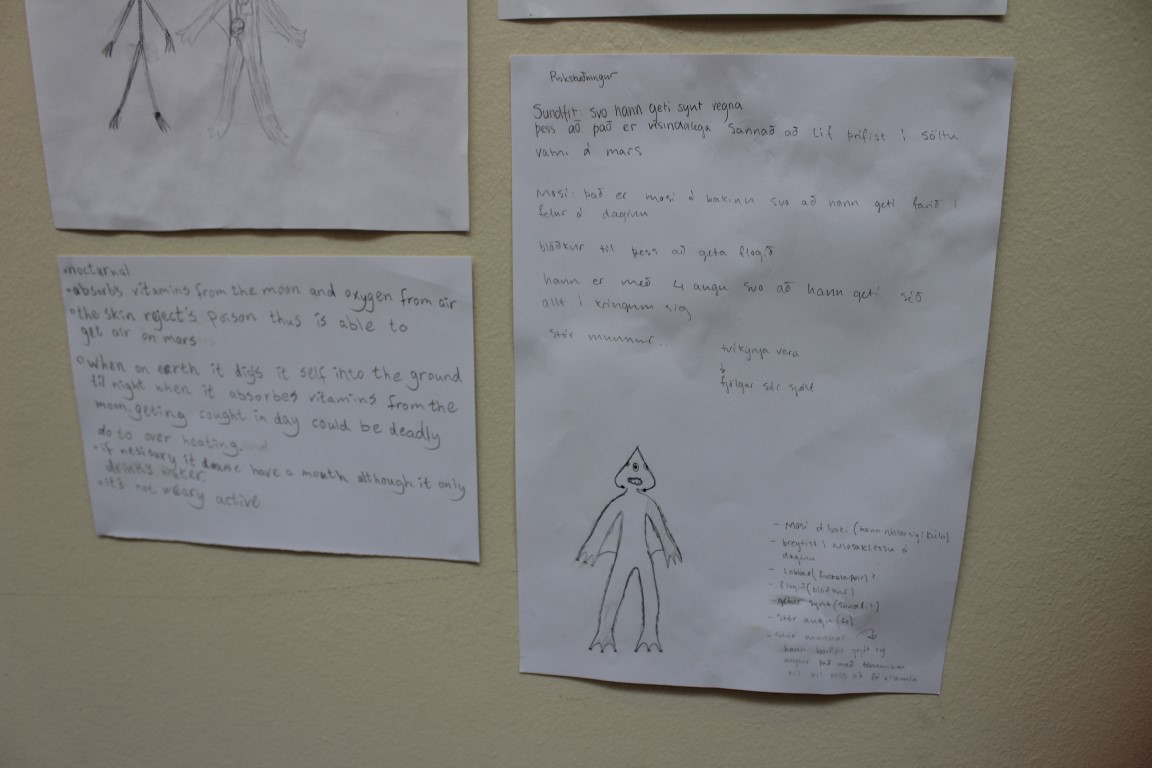 •nocturnal
•absorbs vitamins from the moon and oxygen from air
•the skin reject's poison thus is able to
get air on mars
•when on earth it digs it self into the ground
til night when it absorbes vitamins from the
moon, geting cought in day could be deadly
do to over heating.
•if nesisary it have a mouth although it only
drinks water.
•it's not weary active
Rökstuðningur
Sundfit: svo hann geti synt vegna
þess að það er vísindalega sannað að líf þrífist í söltu
vatni á mars
Mosi: það er mosi á bakinu svo að hann geti farið í
felur á daginn
blöðkur til þess að geta flogið
hann er með 4 augu svo að hann geti séð
allt í kringum sig
stór munnur...
tvíkynja vera
↓
fjölgar sér sjálf
- Mosi á baki (hann í kúlu)
- breytist í mosaklessu á
daginn
- Labbað ?
- flogið (blöðkur)
- getur synt (sundfit)
- stór augu (4)
- stór munnur
hann borðar grjót og
með tönnunum
til þess að fá vítamín